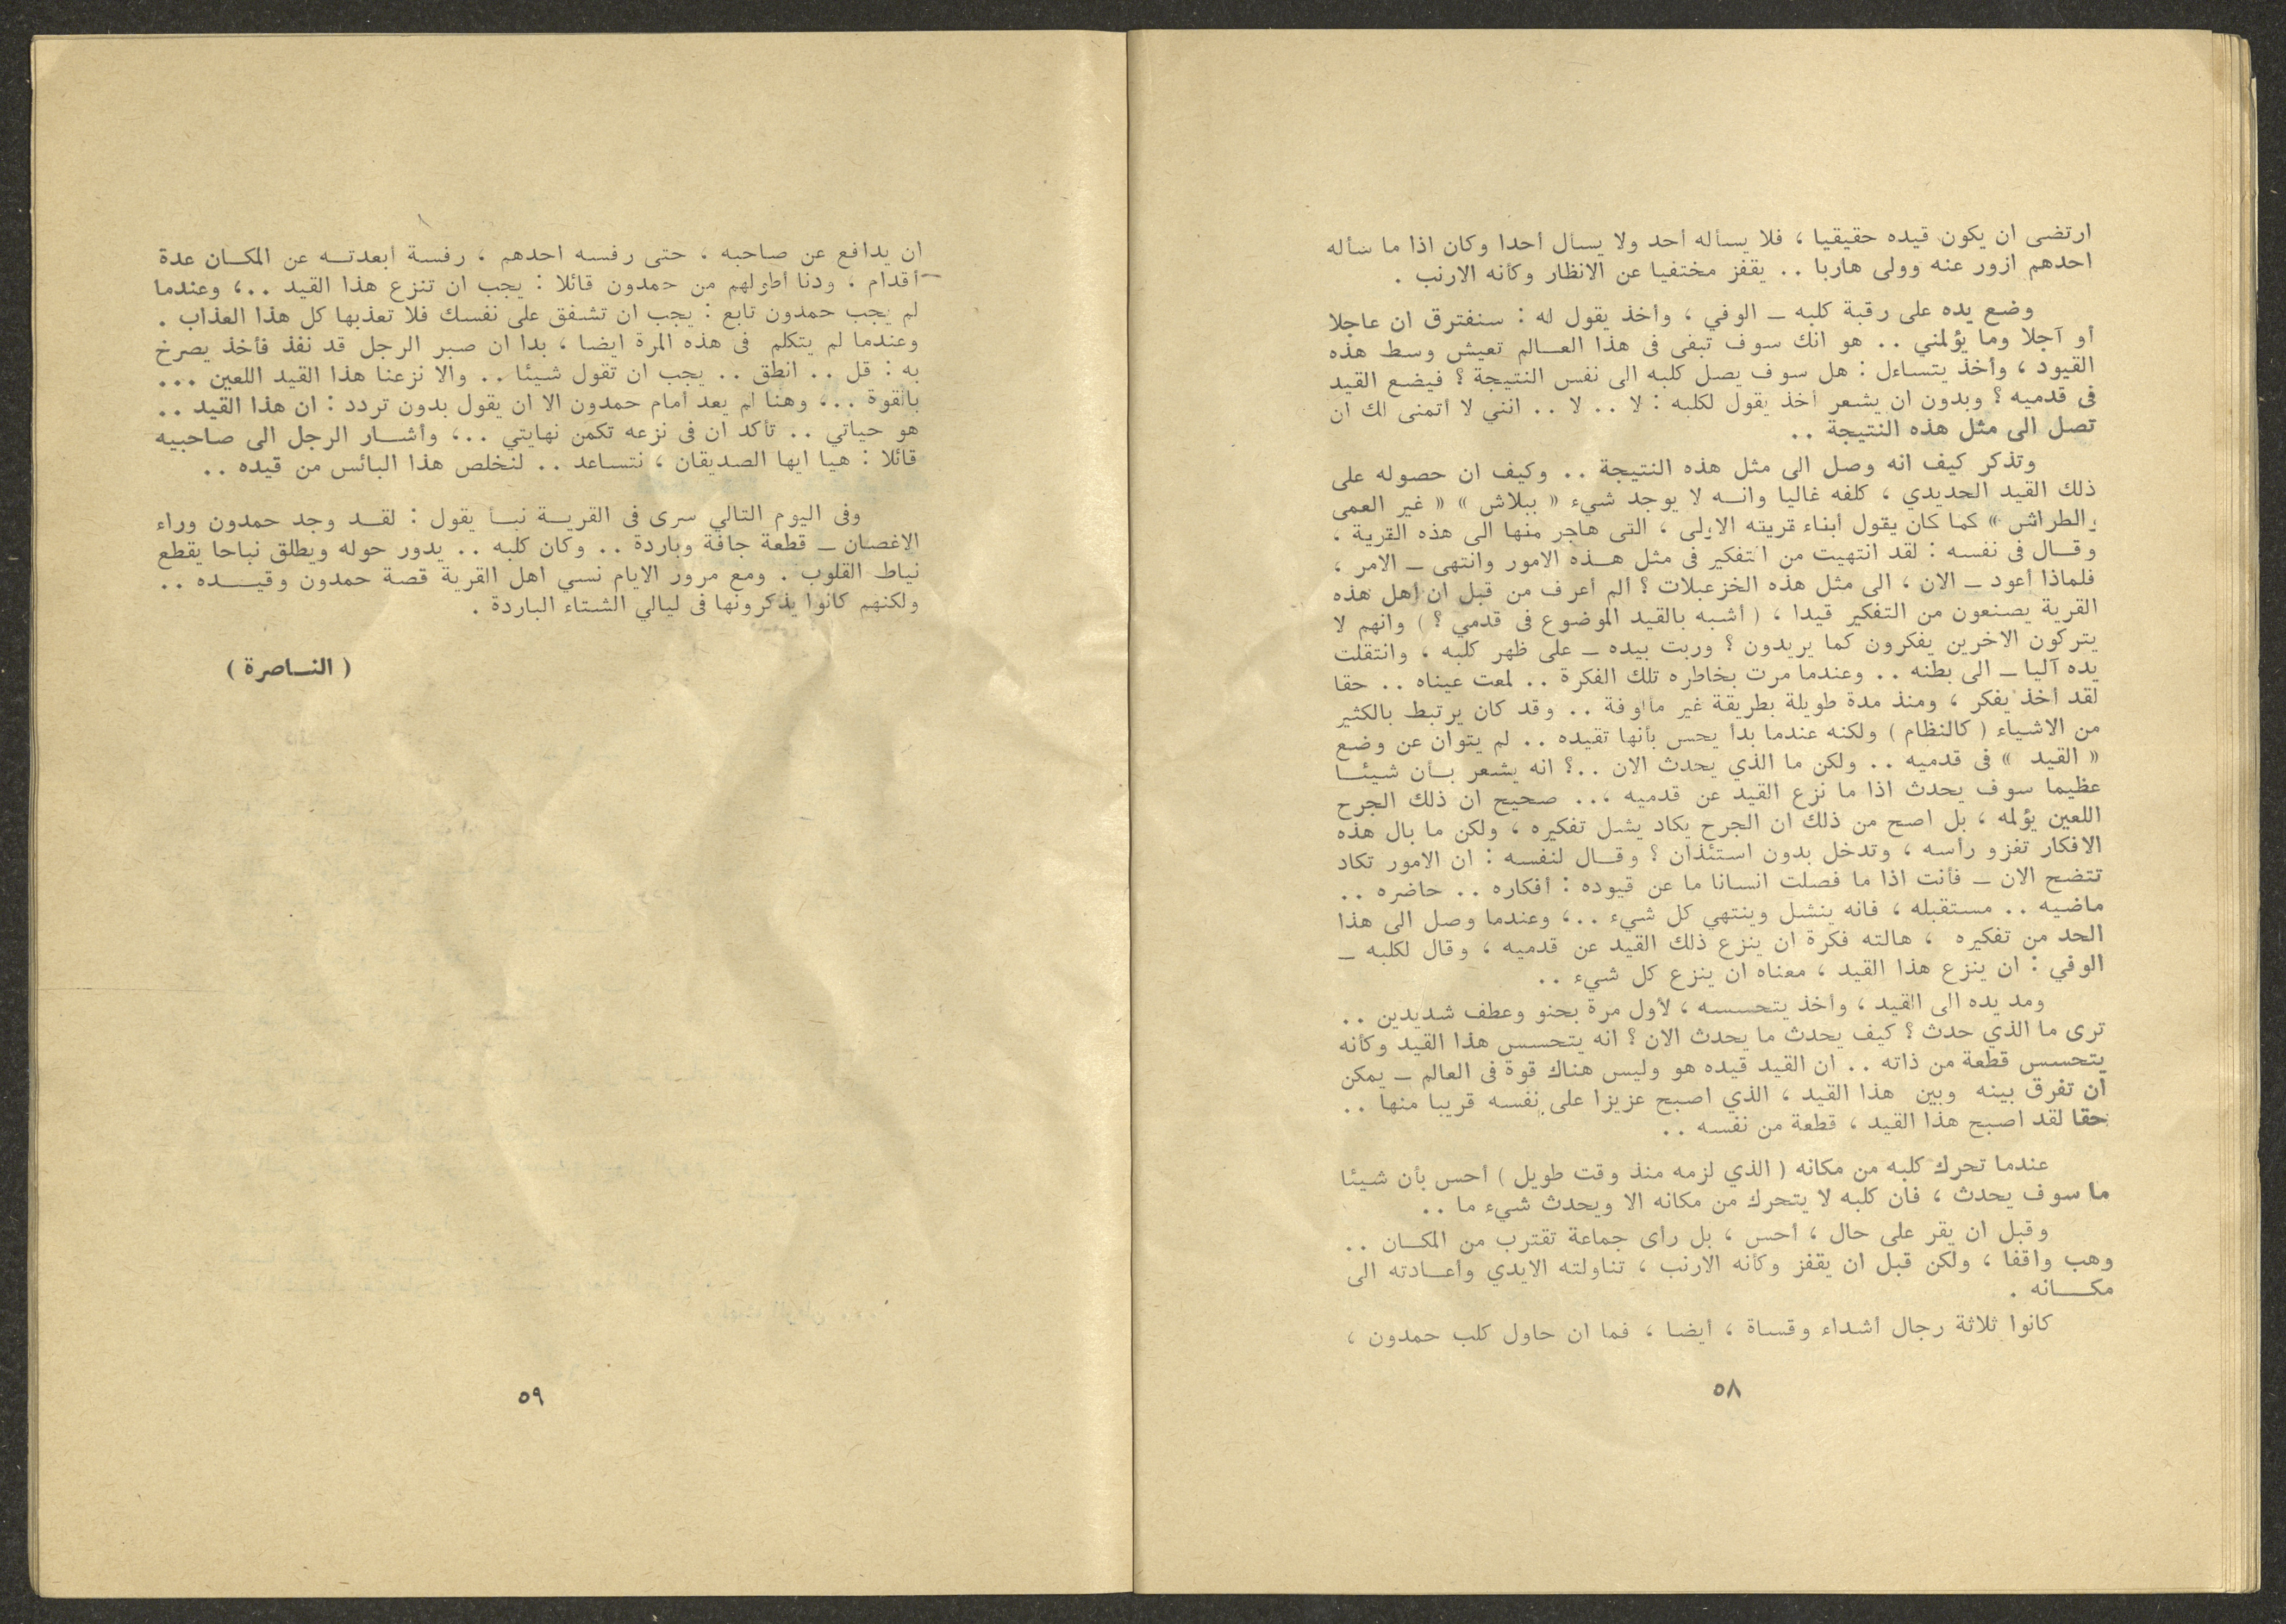 ارتضى ان يكون قيده حقيقيا ، فلا يسأله أحد ولا يسأل أحدا وكان اذا ما سأله
احدهم ازور عنه وولى هاربا .. يقفز مختفيا عن الانظار وكأنه الارنب .
وضع يده على رقبة كلبه ــ الوفي ، وأخذ يقول له : سنفترق ان عاجلا
أو آجلا وما يؤلمني .. هو انك سوف تبقى فى هذا العـالم تعيش وسط هذه
القيود ، وأخذ يتساءل : هل سوف يصل كلبه الى نفس النتيجة ؟ فيضع القيد
فى قدميه ؟ وبدون ان يشعر أخذ يقول لكلبه : لا .. لا .. انني لا أتمنى لك ان
تصل الى مثل هذه النتيجة ..
وتذكر كيف انه وصل الى مثل هذه النتيجة .. وكيف ان حصوله على
ذلك القيد الحديدي ، كلفه غاليا وانـه لا يوجد شيء « ببلاش » « غير العمى
والطراش » كما كان يقول أبناء قريته الاولى ، التى هاجر منها الى هذه القرية ،
وقـال فى نفسه : لقد انتهيت من التفكير فى مثل هـذه الامور وانتهى ــ الامر ،
فلماذا أعود ــ الان ، الى مثل هذه الخزعبلات ؟ ألم أعرف من قبل ان أهل هذه
القرية يصنعون من التفكير قيدا ، ( أشبه بالقيد الموضوع فى قدمي ؟ ) وانهم لا
يتركون الاخرين يفكرون كما يريدون ؟ وربت بيده ــ على ظهر كلبه ، وانتقلت
يده آليا ــ الى بطنه .. وعندما مرت بخاطره تلك الفكرة .. لمعت عيناه .. حقا
لقد أخذ يفكر ، ومنذ مدة طويلة بطريقة غير مألوفة .. وقد كان يرتبط بالكثير
من الاشياء ( كالنظام ) ولكنه عندما بدأ يحس بأنها تقيده .. لم يتوان عن وضع
« القيد » فى قدميه .. ولكن ما الذي يحدث الان ..؟ انه يشعر بـأن شيئـا
عظيما سوف يحدث اذا ما نزع القيد عن قدميه ،.. صحيح ان ذلك الجرح
اللعين يؤلمه ، بل اصح من ذلك ان الجرح يكاد يشل تفكيره ، ولكن ما بال هذه
الافكار تغزو رأسه ، وتدخل بدون استئذان ؟ وقـال لنفسه : ان الامور تكاد
تتضح الان ــ فأنت اذا ما فصلت انسانا ما عن قيوده : أفكاره .. حاضره ..
ماضيه .. مستقبله ، فانه ينشل وينتهي كل شيء ..، وعندما وصل الى هذا
الحد من تفكيره ، هالته فكرة ان ينزع ذلك القيد عن قدميه ، وقال لكلبه ــ
الوفي : ان ينزع هذا القيد ، معناه ان ينزع كل شيء ..
ومد يده الى القيد ، وأخذ يتحسسه ، لأول مرة بحنو وعطف شديدين ..
ترى ما الذي حدث ؟ كيف يحدث ما يحدث الان ؟ انه يتحسس هذا القيد وكأنه
يتحسس قطعة من ذاته .. ان القيد قيده هو وليس هناك قوة فى العالم ــ يمكن
ان تفرق بينه وبين هذا القيد ، الذي اصبح عزيزا على نفسه قريبا منها ..
حقا لقد اصبح هذا القيد ، قطعة من نفسه ..
عندما تحرك كلبه من مكانه ( الذي لزمه منذ وقت طويل ) أحس بأن شيئا
ما سوف يحدث ، فان كلبه لا يتحرك من مكانه الا ويحدث شيء ما ..
وقبل ان يقر على حال ، أحس ، بل رأى جماعة تقترب من المكـان ..
وهب واقفا ، ولكن قبل ان يقفز وكأنه الارنب ، تناولته الايدي وأعـادته الى
مكـــانه .
كانوا ثلاثة رجال أشداء وقساة ، أيضا ، فما ان حاول كلب حمدون ،
٥٨
ان يدافع عن صاحبه ، حتى رفسه احدهم ، رفسة أبعدتـه عن المكـان عدة
أقدام . ودنا أطولهم من حمدون قائلا : يجب ان تنزع هذا القيد ..، وعندما
لم يجب حمدون تابع : يجب ان تشفق على نفسك فلا تعذبها كل هذا العذاب .
وعندما لم يتكلم فى هذه المرة ايضا ، بدا ان صبر الرجل قد نفذ فأخذ يصرخ
به : قل .. انطق .. يجب ان تقول شيئا .. والا نزعنا هذا القيد اللعين ...
بالقوة ..، وهنا لم يعد أمام حمدون الا ان يقول بدون تردد : ان هذا القيد ..
هو حياتي .. تأكد ان فى نزعه تكمن نهايتي ..، وأشـار الرجل الى صاحبيه
قائلا : هيا ايها الصديقان ، نتساعد .. لنخلص هذا البائس من قيده ..
وفى اليوم التالي سرى فى القريـة نبـأ يقول : لقـد وجد حمدون وراء
الاغصان ــ قطعة جافة وباردة .. وكان كلبه .. يدور حوله ويطلق نباحا يقطع
نياط القلوب . ومع مرور الايام نسي اهل القرية قصة حمدون وقيــده ..
ولكنهم كانوا يذكرونها فى ليالي الشتاء الباردة .
( النـاصرة )
٥٩